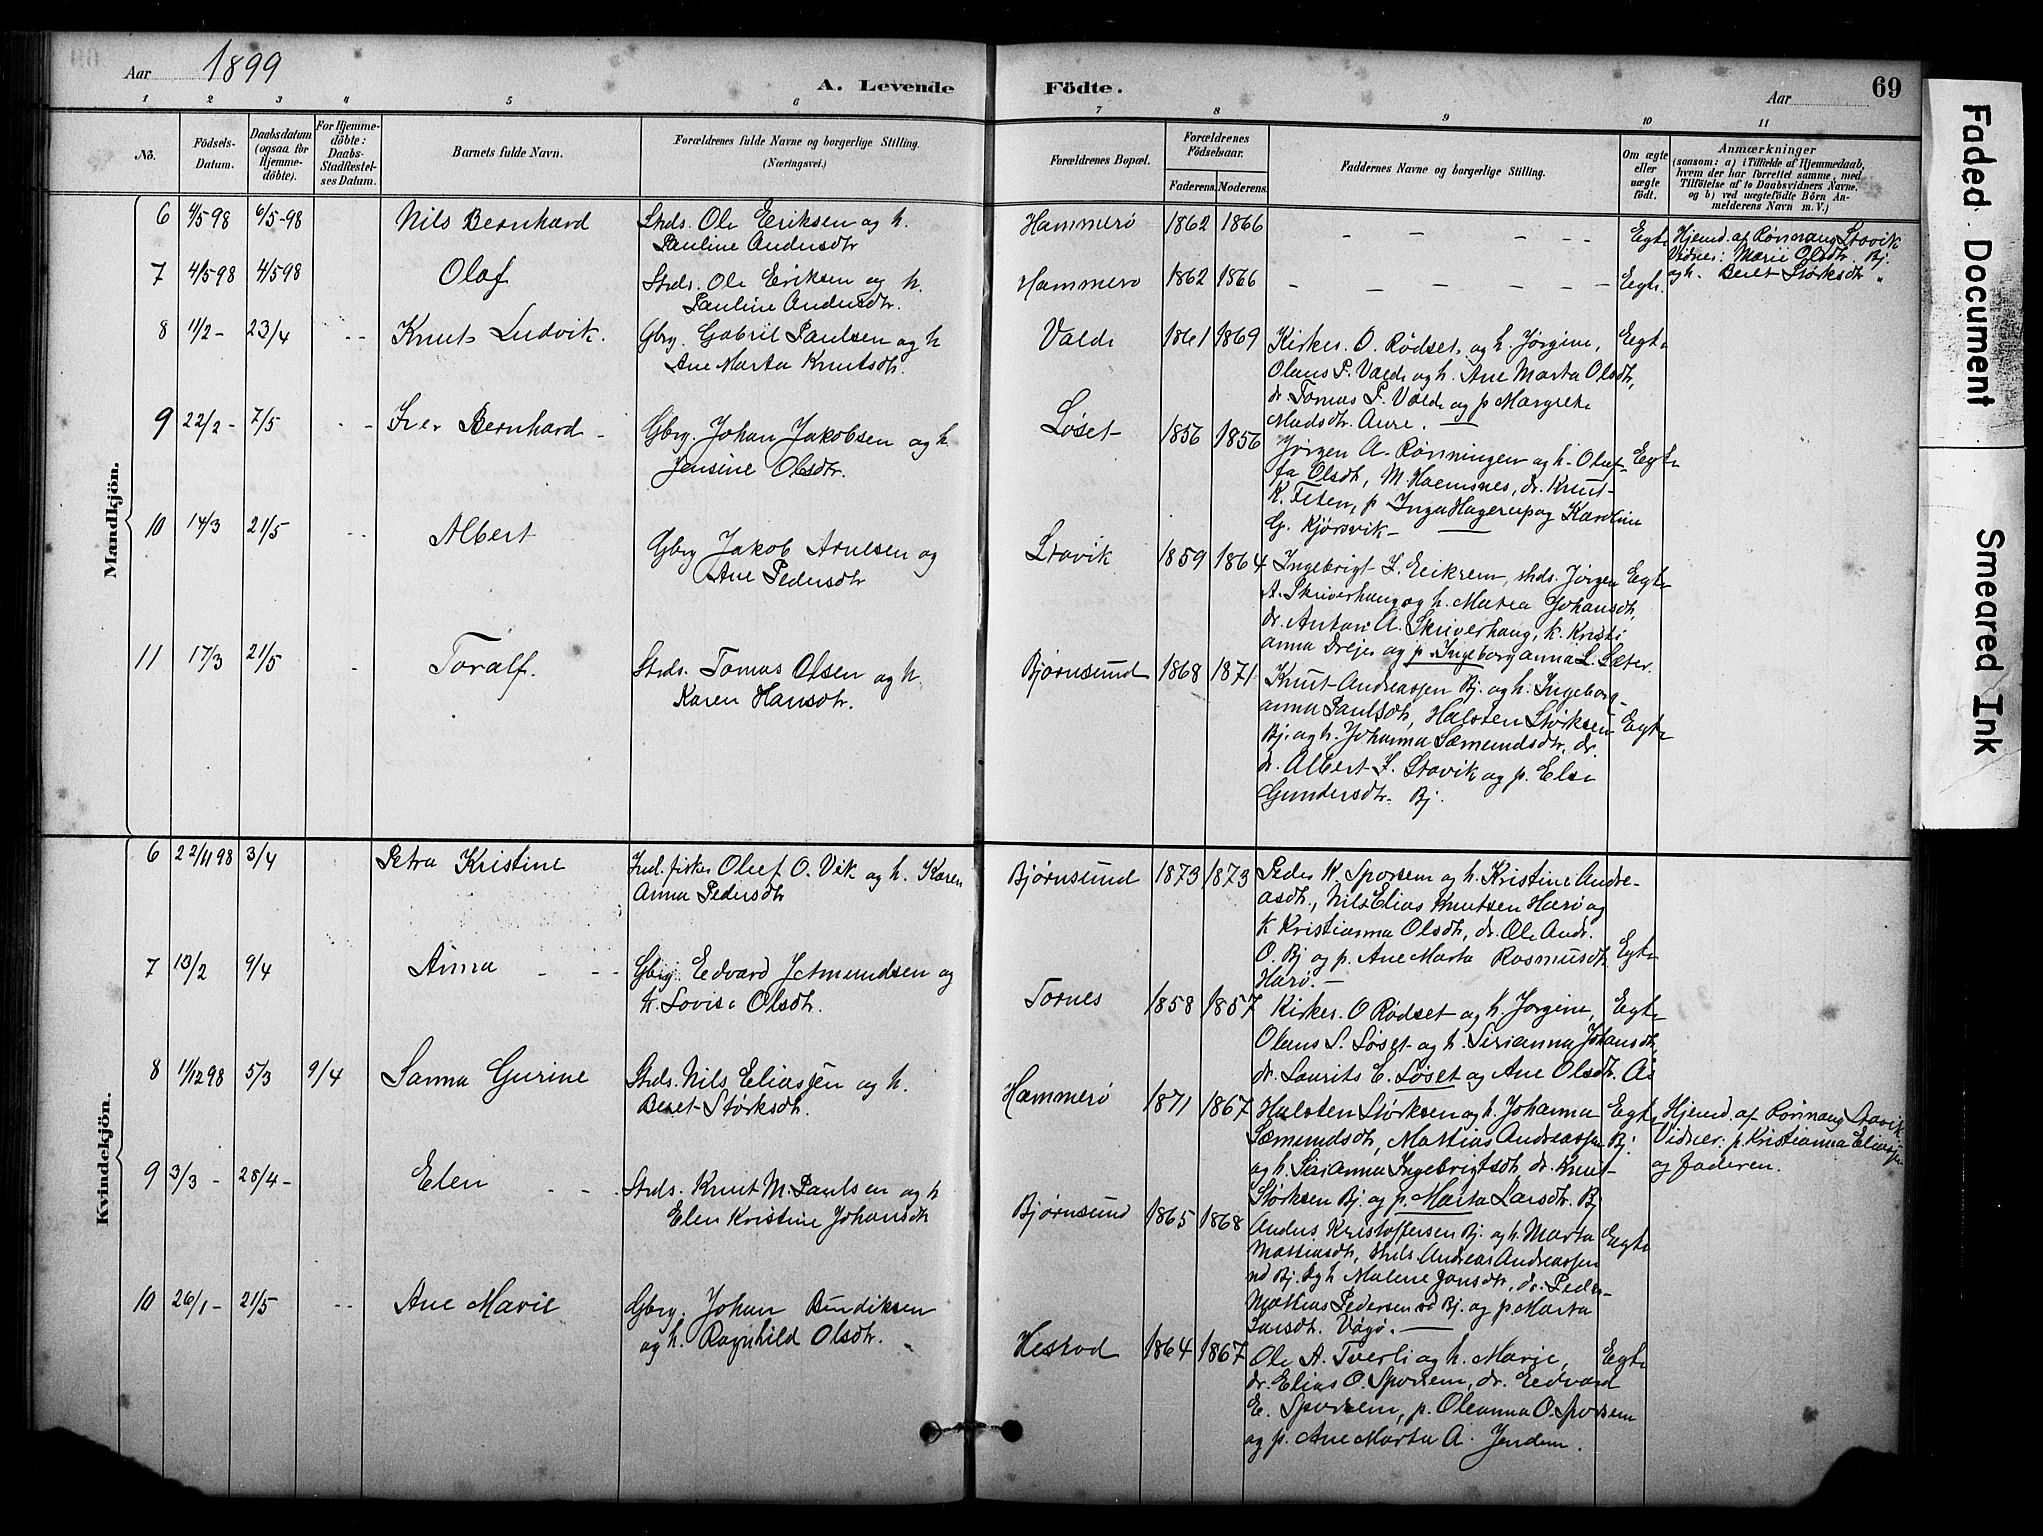 Aar 1899
A. Levende Födte.
Aar 69
1 2 3 4 5 6 7 8 9 10 11
No.
Födsels-Datum.
Daabsdatum (ogsaa for Hjemme-döbte).
For Hjemme-döbte: Daabs-Stadfæstel-ses Datum.
Barnets fulde Navn.
Forældrenes fulde Navne og borgerlige Stilling. (Næringsvei.)
Forældrenes Bopæl.
Forældrenes Födselsaar.
Faderens. Moderens.
Faddernes Navne og borgerlige Stilling.
Om ægte eller uægte födt.
Anmærkninger
(saasom: a) i Tilfælde af Hjemmedaab, hvem der har forrettet samme, med Tilföielse af to Daabsvidners Navne. og b) ved uægtefödte Börn An-melderens Navn m. V.)
Mandkjön.
6 4/5 98 6/5-98 Nils Bernhard Strds. Ole Eriksen og h. Hammerø 1862 1866 Egte Hjemd. af Rønnaug Stavik
Pauline Andersdtr Vidner: Marie Olsdtr. Bj.
7 4/5 98 4/5 98 Olaf Strds. Ole Eriksen og h. Hammerø 1862 1866 Egte. og h. Beret Størksdtr "
Pauline Andersdtr.
8 11/2 - 23/4 Knut Ludvik. Gbrg. Gabriel Paulsen og h Valde 1861 1869 Kirkes. O. Rødset, og h. Jørgine, Egte
Ane Marta Knutsdtr. Olaus P. Valde og h. Ane Marta Olsdtr,
dr. Tomas P. Valde og p Margrete
Madsdtr. Aure.
9 22/2 - 7/5 Iver Bernhard - Gbrg. Johan Jakobsen og h Løset 1856 1856 Jørgen A. Rønningen og h. Oluf- Egte
Jensine Olsdtr. fa Olsdtr, M. Haemsnes, dr. Knut
K. Feten, p Inga Hagerup og Karoline
G. Kjørsvik -
10 14/3 21/5 Albert Gbrg Jakob Arnesen og Stavik 1859 1864 Ingebrigt L. Eikrem, strds. Jørgen Egte
Ane Pedersdtr A. Skriverhaug og h. Matea Johansdtr,
dr. Anton A. Skriverhaug, k. Kristi
anna Drejer og p. Ingeborganna L. Sæter.
11 17/3 21/5 Toralf. Strds. Tomas Olsen og h. Bjørnsund 1868 1871 Knut Andreassen Bj. og h. Ingeborg
Karen Hansdtr. anna Paulsdtr, Halsten Størksen Egte
Bj. og h. Johanna Sæmundsdtr. dr.
dr. Albert L. Stavik og p. Else
Gundersdtr. Bj.
Kvindekjön.
6 22/11 98 3/4 Petra Kristine Ind. fisker Oluf O. Vik og h. Karen Bjørnsund 1873 1873 Peder K. Sporsem og h. Kristine Andre-
Anna Pedersdtr asdtr., Nils Elias Knutsen Harø og
k Kristianna Olsdtr, dr. Ole Andr.
O. Bj og p. Ane Marta Rasmusdtr Egte
Harø. -
7 13/2 9/4 Anna Gbrg. Edvard Jetmundsen og Tornes 1858 1857 Kirkes. O Rødset og h. Jørgine, Egte
h. Lovise Olsdtr. Olaus S. Løset og h. Serianna Johansdtr,
dr. Laurits E. Løset og Ane Olsdtr. As
8 11/12 98 5/3 9/4 Sanna Gurine Strds. Nils Eliassen og h. Hammerø 1871 1867 Halsten Størksen og h. Johanna Egte Hjemd. af Rønnaug Stavik
Beret Størksdtr. Sæmundsdtr, Mattias Andreassen Bj. Vidner: p. Kristianna Eliassen
og h. Serianna Ingebrigtsdtr. dr. Knut og faderen.
Størksen Bj. og p. Marta Larsdtr. Bj
9 3/3 - 28/4 - Elen Strds. Knut M. Paulsen og h Bjørnsund 1865 1868 Anders Kristoffersen Bj. og h. Marta Egte
Elen Kristine Johansdtr Mattiasdtr, strds. Andreas Andreassen
nd Bj. og h Malene Jansdtr, dr. Peder
Mattias Pedersen nd Bj. og p Marta
Larsdtr. Vågø.
10 26/1 - 21/5 Ane Marie Gbrg. Johan Bendiksen Hestad 1864 1867 Ole A. Tverli og h. Marie, Egte
og h. Ragnhild Olsdtr. dr. Elias O. Sporsem, dr. Edvard
E. Sporsem, p. Oleanna O. Sporsem
og p. Ane Marta A. Jendem.
Faded Document
Smeared Ink